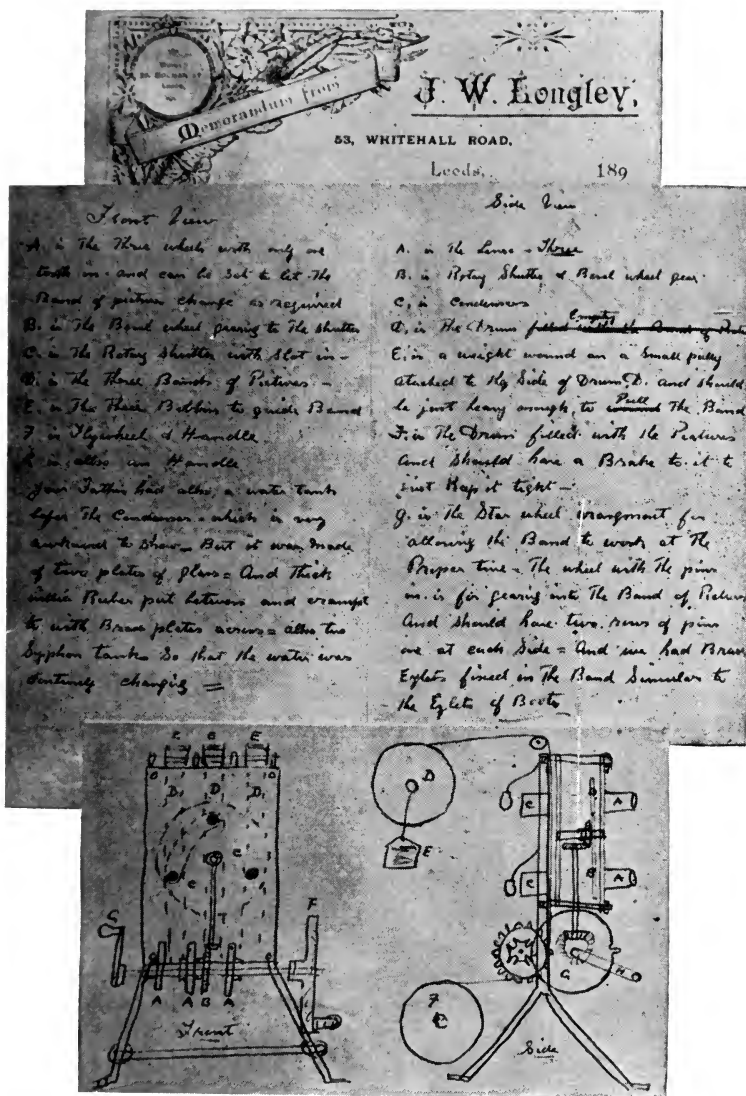 Memorandum from
J. W. Longley,
53, WHITEHALL ROAD,
Leeds, 189
Front View
A. is The Three wheels with only one
tooth in - and can be set to let The
Band of pictures change as required
B. is The Bevel wheel gearing to The shutter
C. is The Rotary Shutter with Slot in -
D. is The Three Bands of Pictures -
E. is The Three Bobbins to guide Band
F is Flywheel & Handle
is also an Handle
Your Father had also, a water tank
before The Condenser - which is very
awkward to show - But it was made
of two plates of glass = And thick
Rubber put between and crampt
to with Brass plates across = also two
Syphon tanks So that the water was
changing =
Side View
A. is The Lense - Three
B. is Rotary Shutter & Bevel wheel gear.
C. is Condensers
D. is The Drum Empty filled with the Band of
E. is a weight wound on a Small pully
attached to the Side of Drum D. and should
be just heavy enough, to Pull The Band
F. is The Drum filled with the Pictures
And Should have a Brake to it to
just Keep it tight -
G. is The Star wheel arrangment for
allowing the Band to work at The
Proper time = The wheel with The pins
in. is for gearing into The Band of Pictures
And should have two rows of pins
one at each Side = And we had Brass
Eylets fixed in The Band Simular to
the Eylets of Boots
E E
D D D
C
C
G F
A A B A
Front
D
E
B
C A
B
C A
G H
F
Side